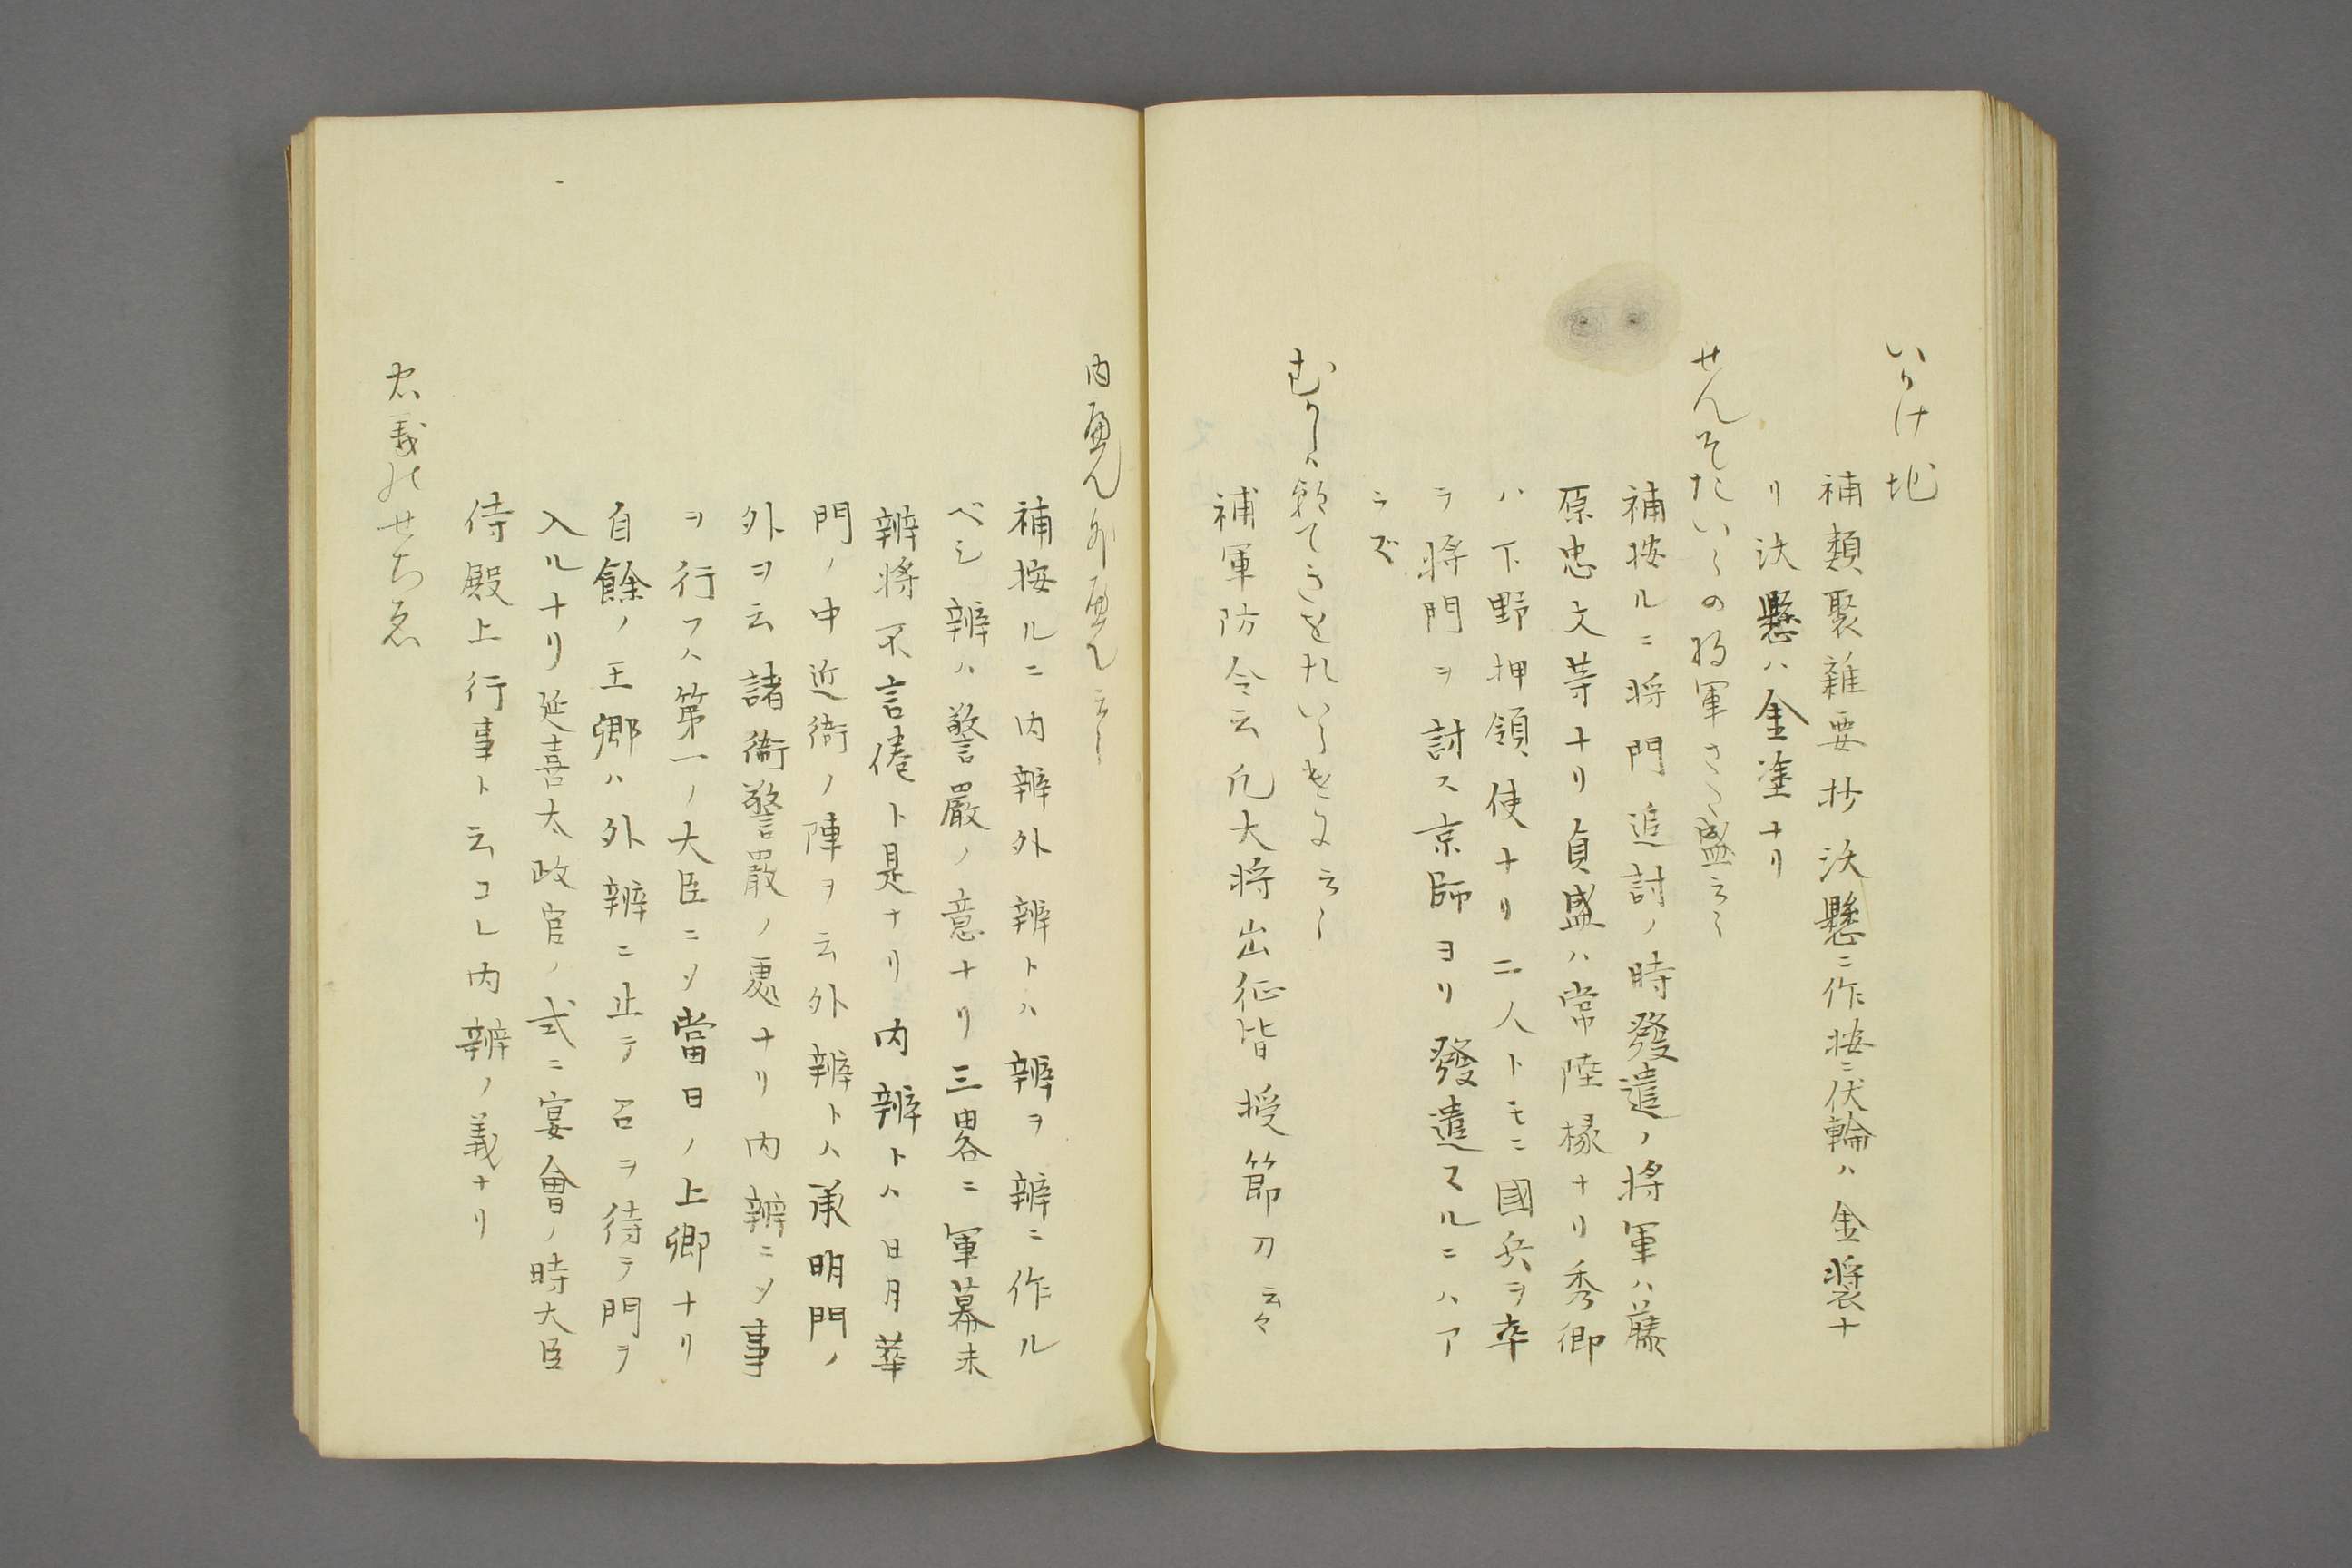 いかけ地
補類聚雑要抄沃懸ニ作按ニ伏輪ハ金装ナ
リ沃懸ハ金塗ナリ
せんそたいらの将軍さた盛云〻
補按ルニ将門追討ノ時發遣ノ将軍ハ藤
原忠文等ナリ貞盛ハ常陸椽ナリ秀郷
ハ下野押領使ナリ二人トモニ國兵ヲ卒
ラ将門ヲ討ス京師ヨリ發遣スルニハア
ラズ
むかしハ朝てきをたいらけに云〻
補軍防令云凡大将出征皆授節刀云々
内弁外弁云〻
補按ルニ内辨外辨トハ辨ヲ辦ニ作ル
ベシ辨ハ警嚴ノ意ナリ三畧ニ軍幕未
辨将不言倦ト是ナリ内辨トハ日月華
門ノ中近衛ノ陣ヲ云外辨トハ承明門ノ
外ヲ云諸衛警嚴ノ處ナリ内辨ニソ事
ヲ行フハ第一ノ大臣ニソ當日ノ上卿ナリ
自餘ノ王卿ハ外辨ニ止テ召ヲ待テ門ヲ
入ルナリ延喜太政官ノ式ニ宴會ノ時大臣
侍殿上行事ト云コレ内辨ノ義ナリ
忠義のせちゑ